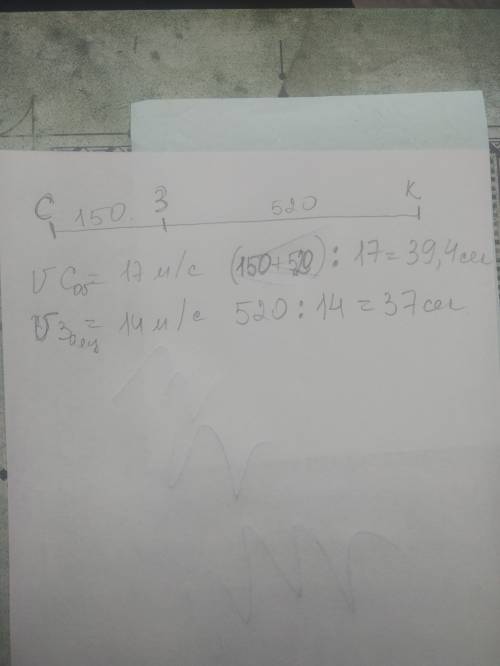 С 150. З 520 К
V Соб = 17 м/с (150+520) : 17 = 39,4 сек
V Заяц = 14 м/с 520 : 14 = 37 сек